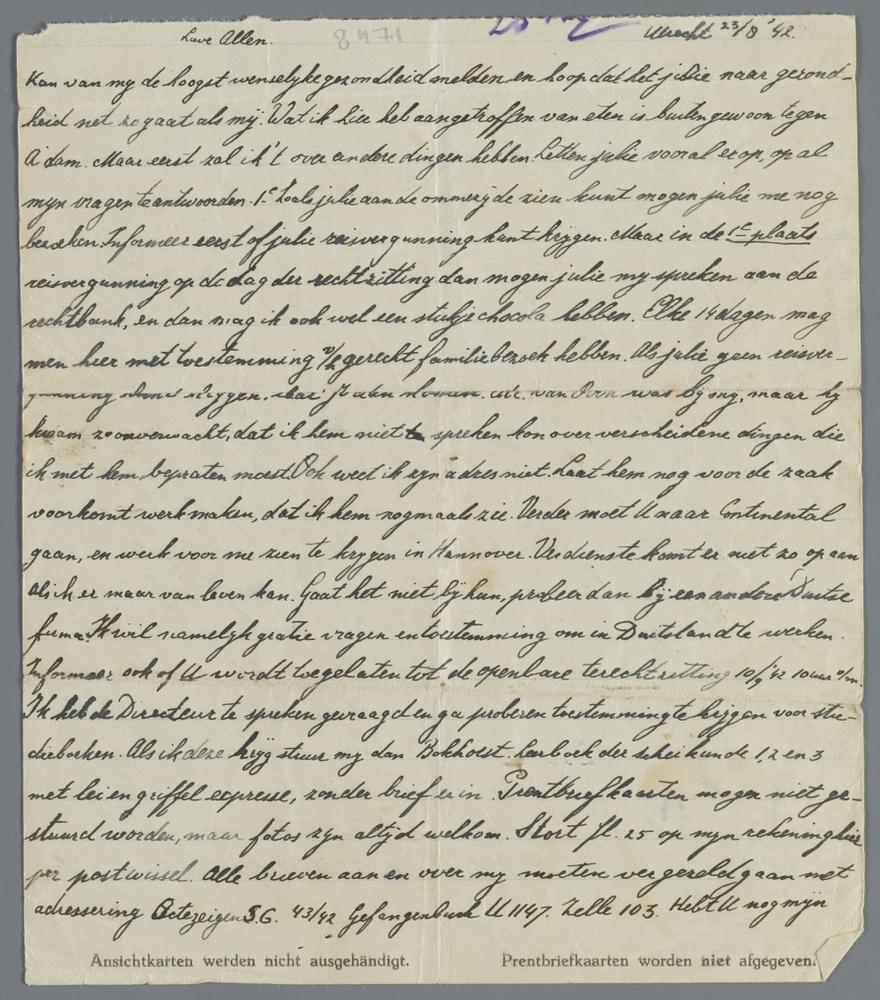 Lieve Allen. 8471 Utrecht 23/8 '42.
Kan van my de hoogst wenselyke gezondheid melden en hoop dat het julie naar gezond-
heid net zo gaat als mÿ. Wat ik hier heb aangetroffen van eten is buitengewoon tegen
A'dam. Maar eerst zal ik 't over andere dingen hebben. Letten julie vooral er op, op al
myn vragen te antwoorden. 1e Zoals julie aan de ommezyde zien kunt mogen julie me nog
bezoeken. Informeer eerst of julie reisvergunning kunt krygen. Maar in de 1e plaats
reisvergunning op de dag der rechtzitting dan mogen julie my spreken aan de
rechtbank, en dan mag ik ook wel een stukje chocola hebben. Elke 14 dagen mag
men hier met toestemming v/h gerecht familiebezoek hebben. Als julie geen reisver-
gunning krygen. van was by my, maar hy
kwam zo onverwacht, dat ik hem niet spreken kon over verscheidene dingen die
ik met hem bepraten moest. Ook weet ik zyn adres niet. Laat hem nog voor de zaak
voorkomt werk maken, dat ik hem nogmaals zie. Verder moet U naar Continental
gaan, en werk voor me zien te krygen in Hannover. Verdienste komt er niet zo op aan
als ik er maar van leven kan. Gaat het niet bÿ hun, probeer dan bÿ een andere Duitse
firma. Ik wil namelyk gratie vragen en toestemming om in Duitsland te werken.
Informeer ook of U wordt toegelaten tot de openbare terechtzitting 10/9 '42 10 uur v/m.
Ik heb de Directeur te spreken gevraagd en ga proberen toestemming te krygen voor stu-
dieboeken. Als ik deze krÿg stuur my dan Bokhorst leerboek der scheikunde 1, 2 en 3
met lei en griffel expresse, zonder brief er in. Prentbriefkaarten mogen niet ge-
stuurd worden, maar fotos zyn altÿd welkom. Stort fl. 25 op myn rekening hier
per postwissel. Alle brieven aan en over my moeten vergezeld gaan met
adressering S.G. 43/42 U 1147. Zelle 103. Hebt U nog mÿn
Ansichtkarten werden nicht ausgehändigt. Prentbriefkaarten worden niet afgegeven.